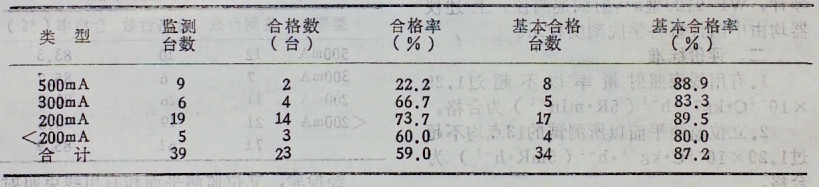 类 型 监测台数 合格数(台) 合格率(%) 基本合格台数 基本合格率(%)
500mA 9 2 22.2 8 88.9
300mA 6 4 66.7 5 83.3
200mA 19 14 73.7 17 89.5
<200mA 5 3 60.0 4 80.0
合 计 39 23 59.0 34 87.2